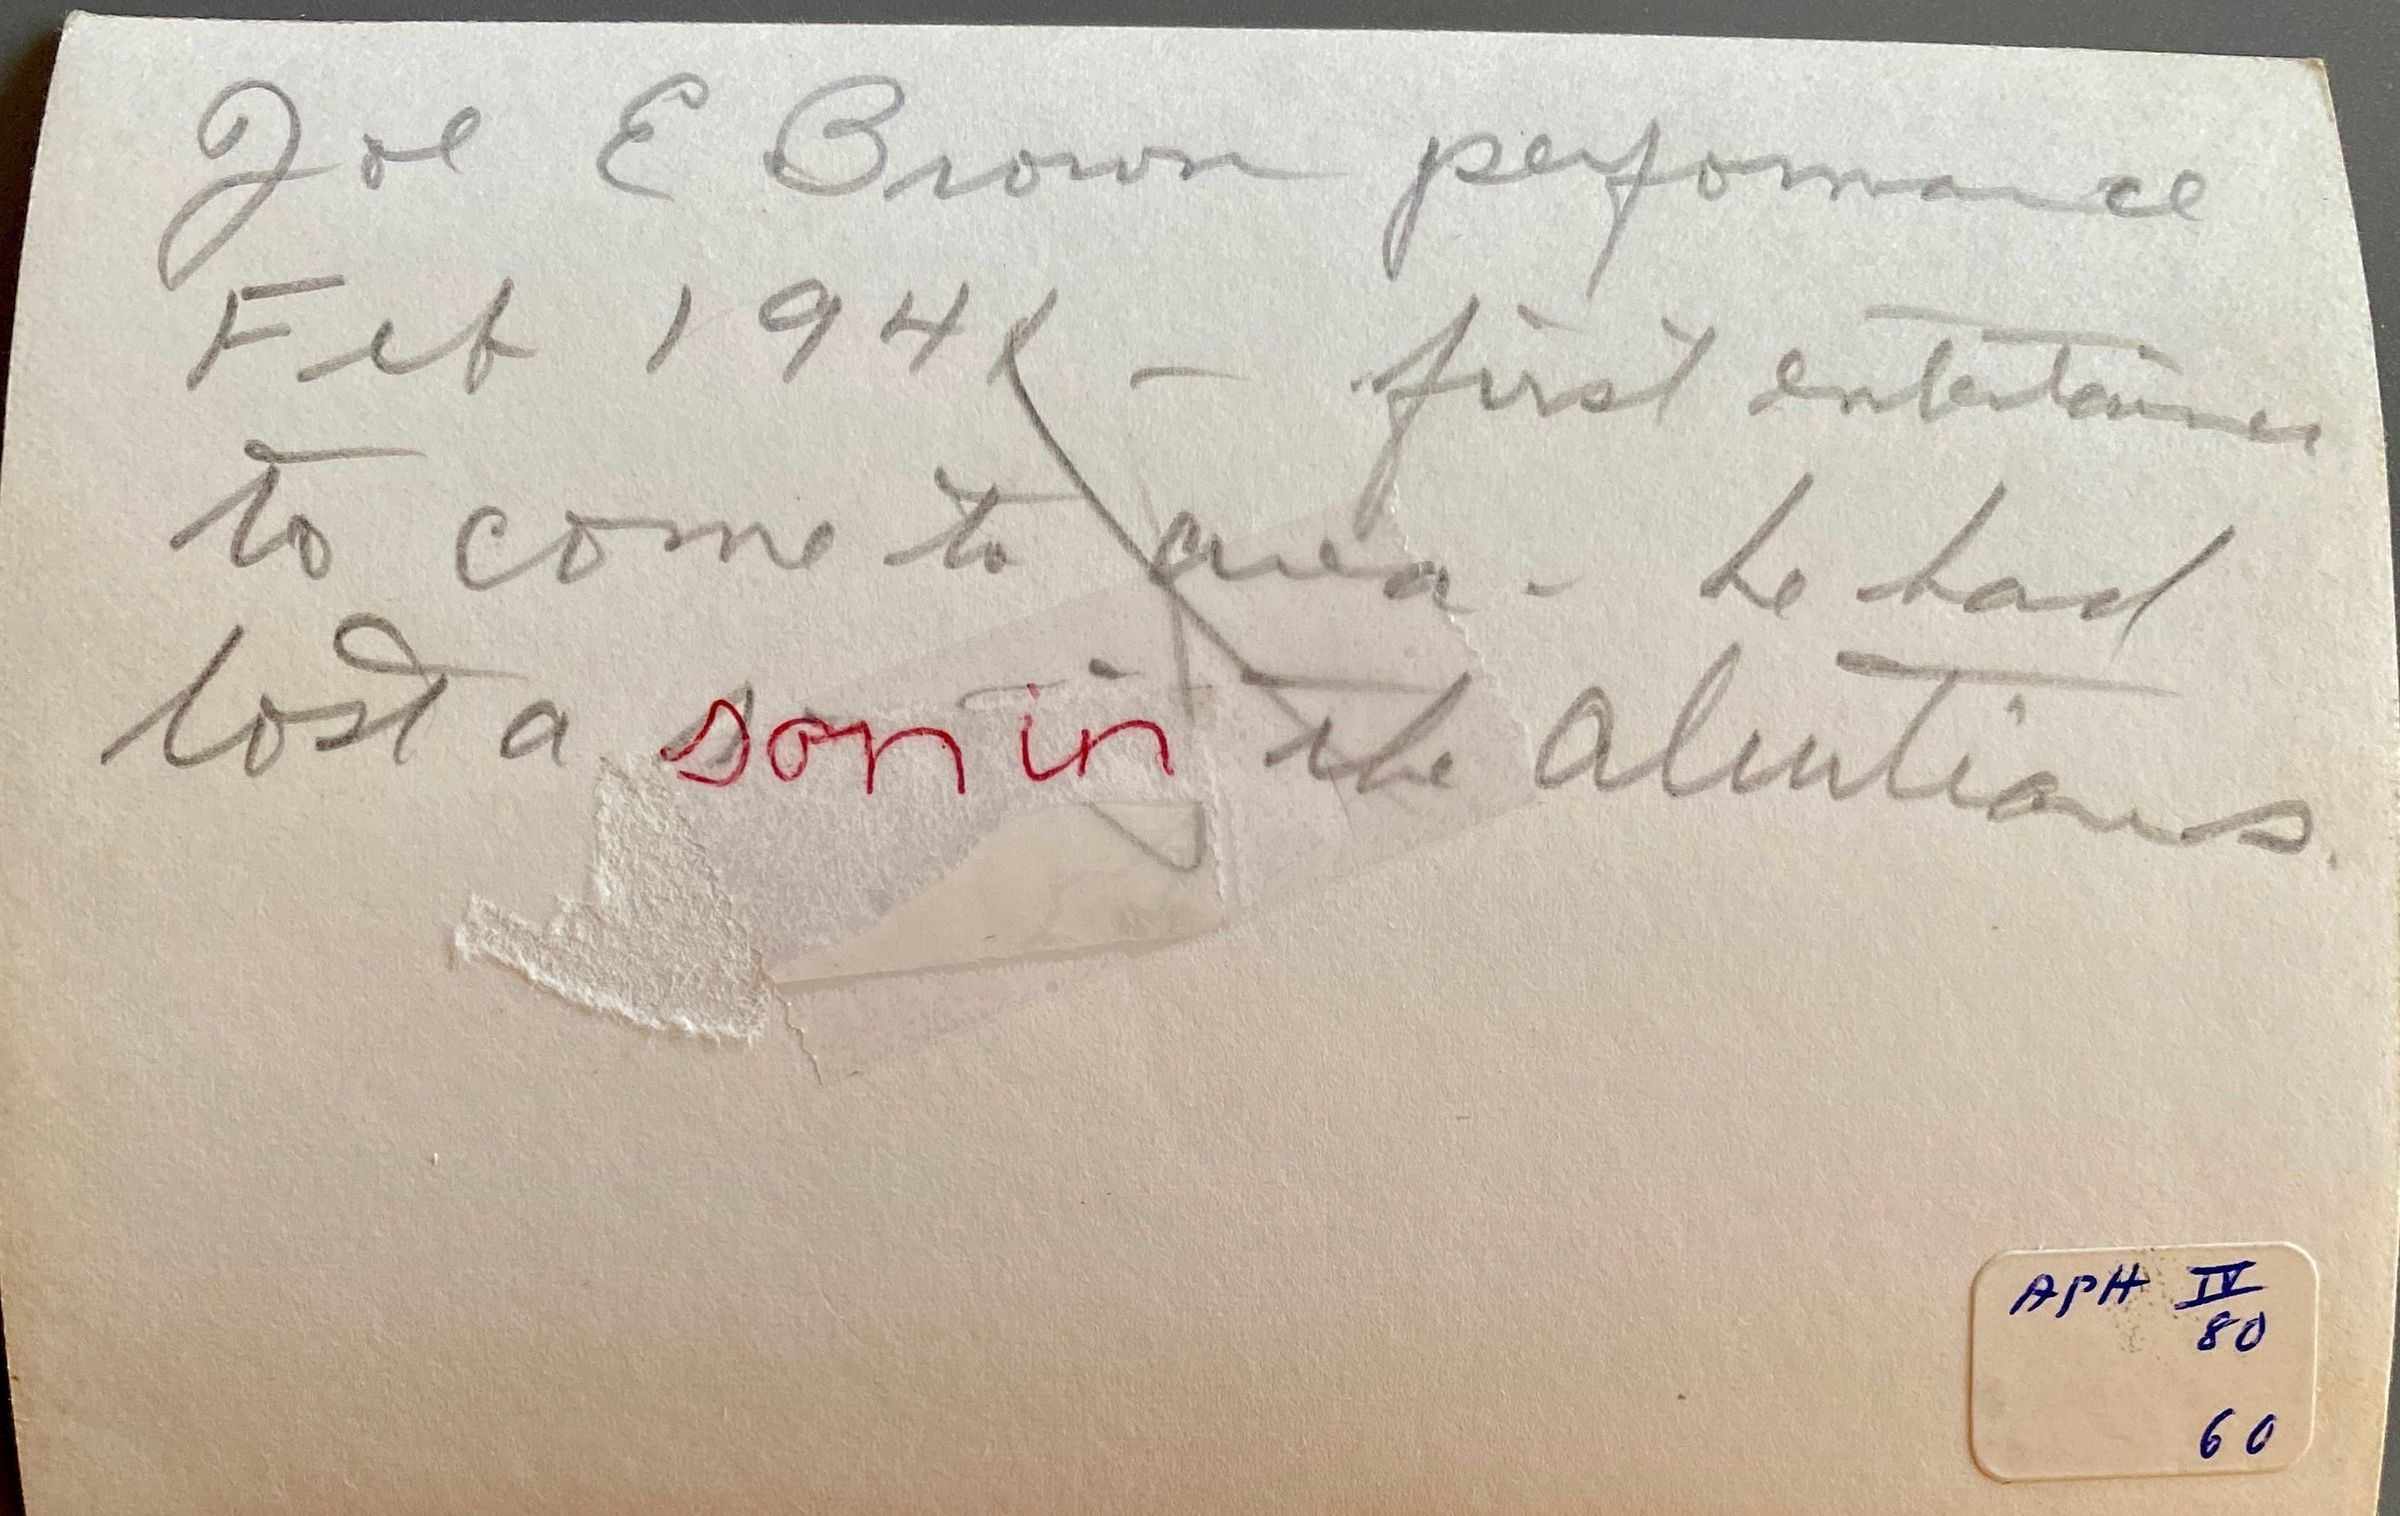 Joe E Brown perfomance
Feb 1941 - first entertainer
to come to area - he had
lost a son in the Aleutians.
APH IV
80
60